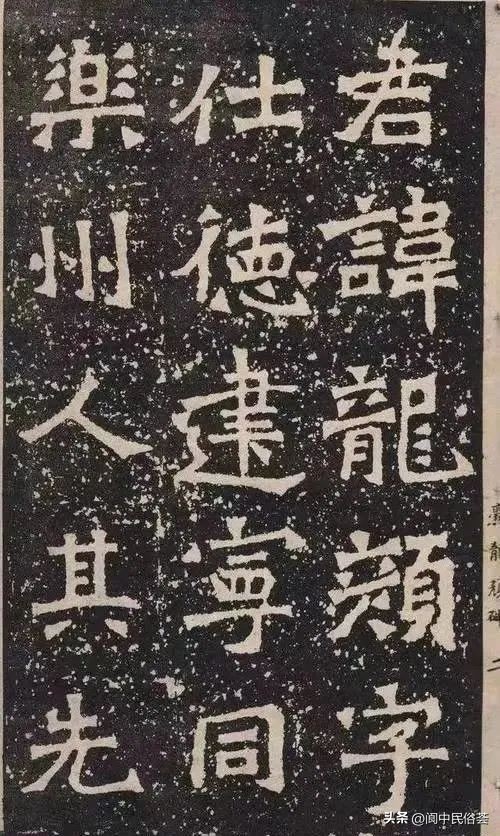 君諱龍顏字
仕德建寧同
樂州人其先
爨龍顏碑 二
头条 @阆中民俗荟